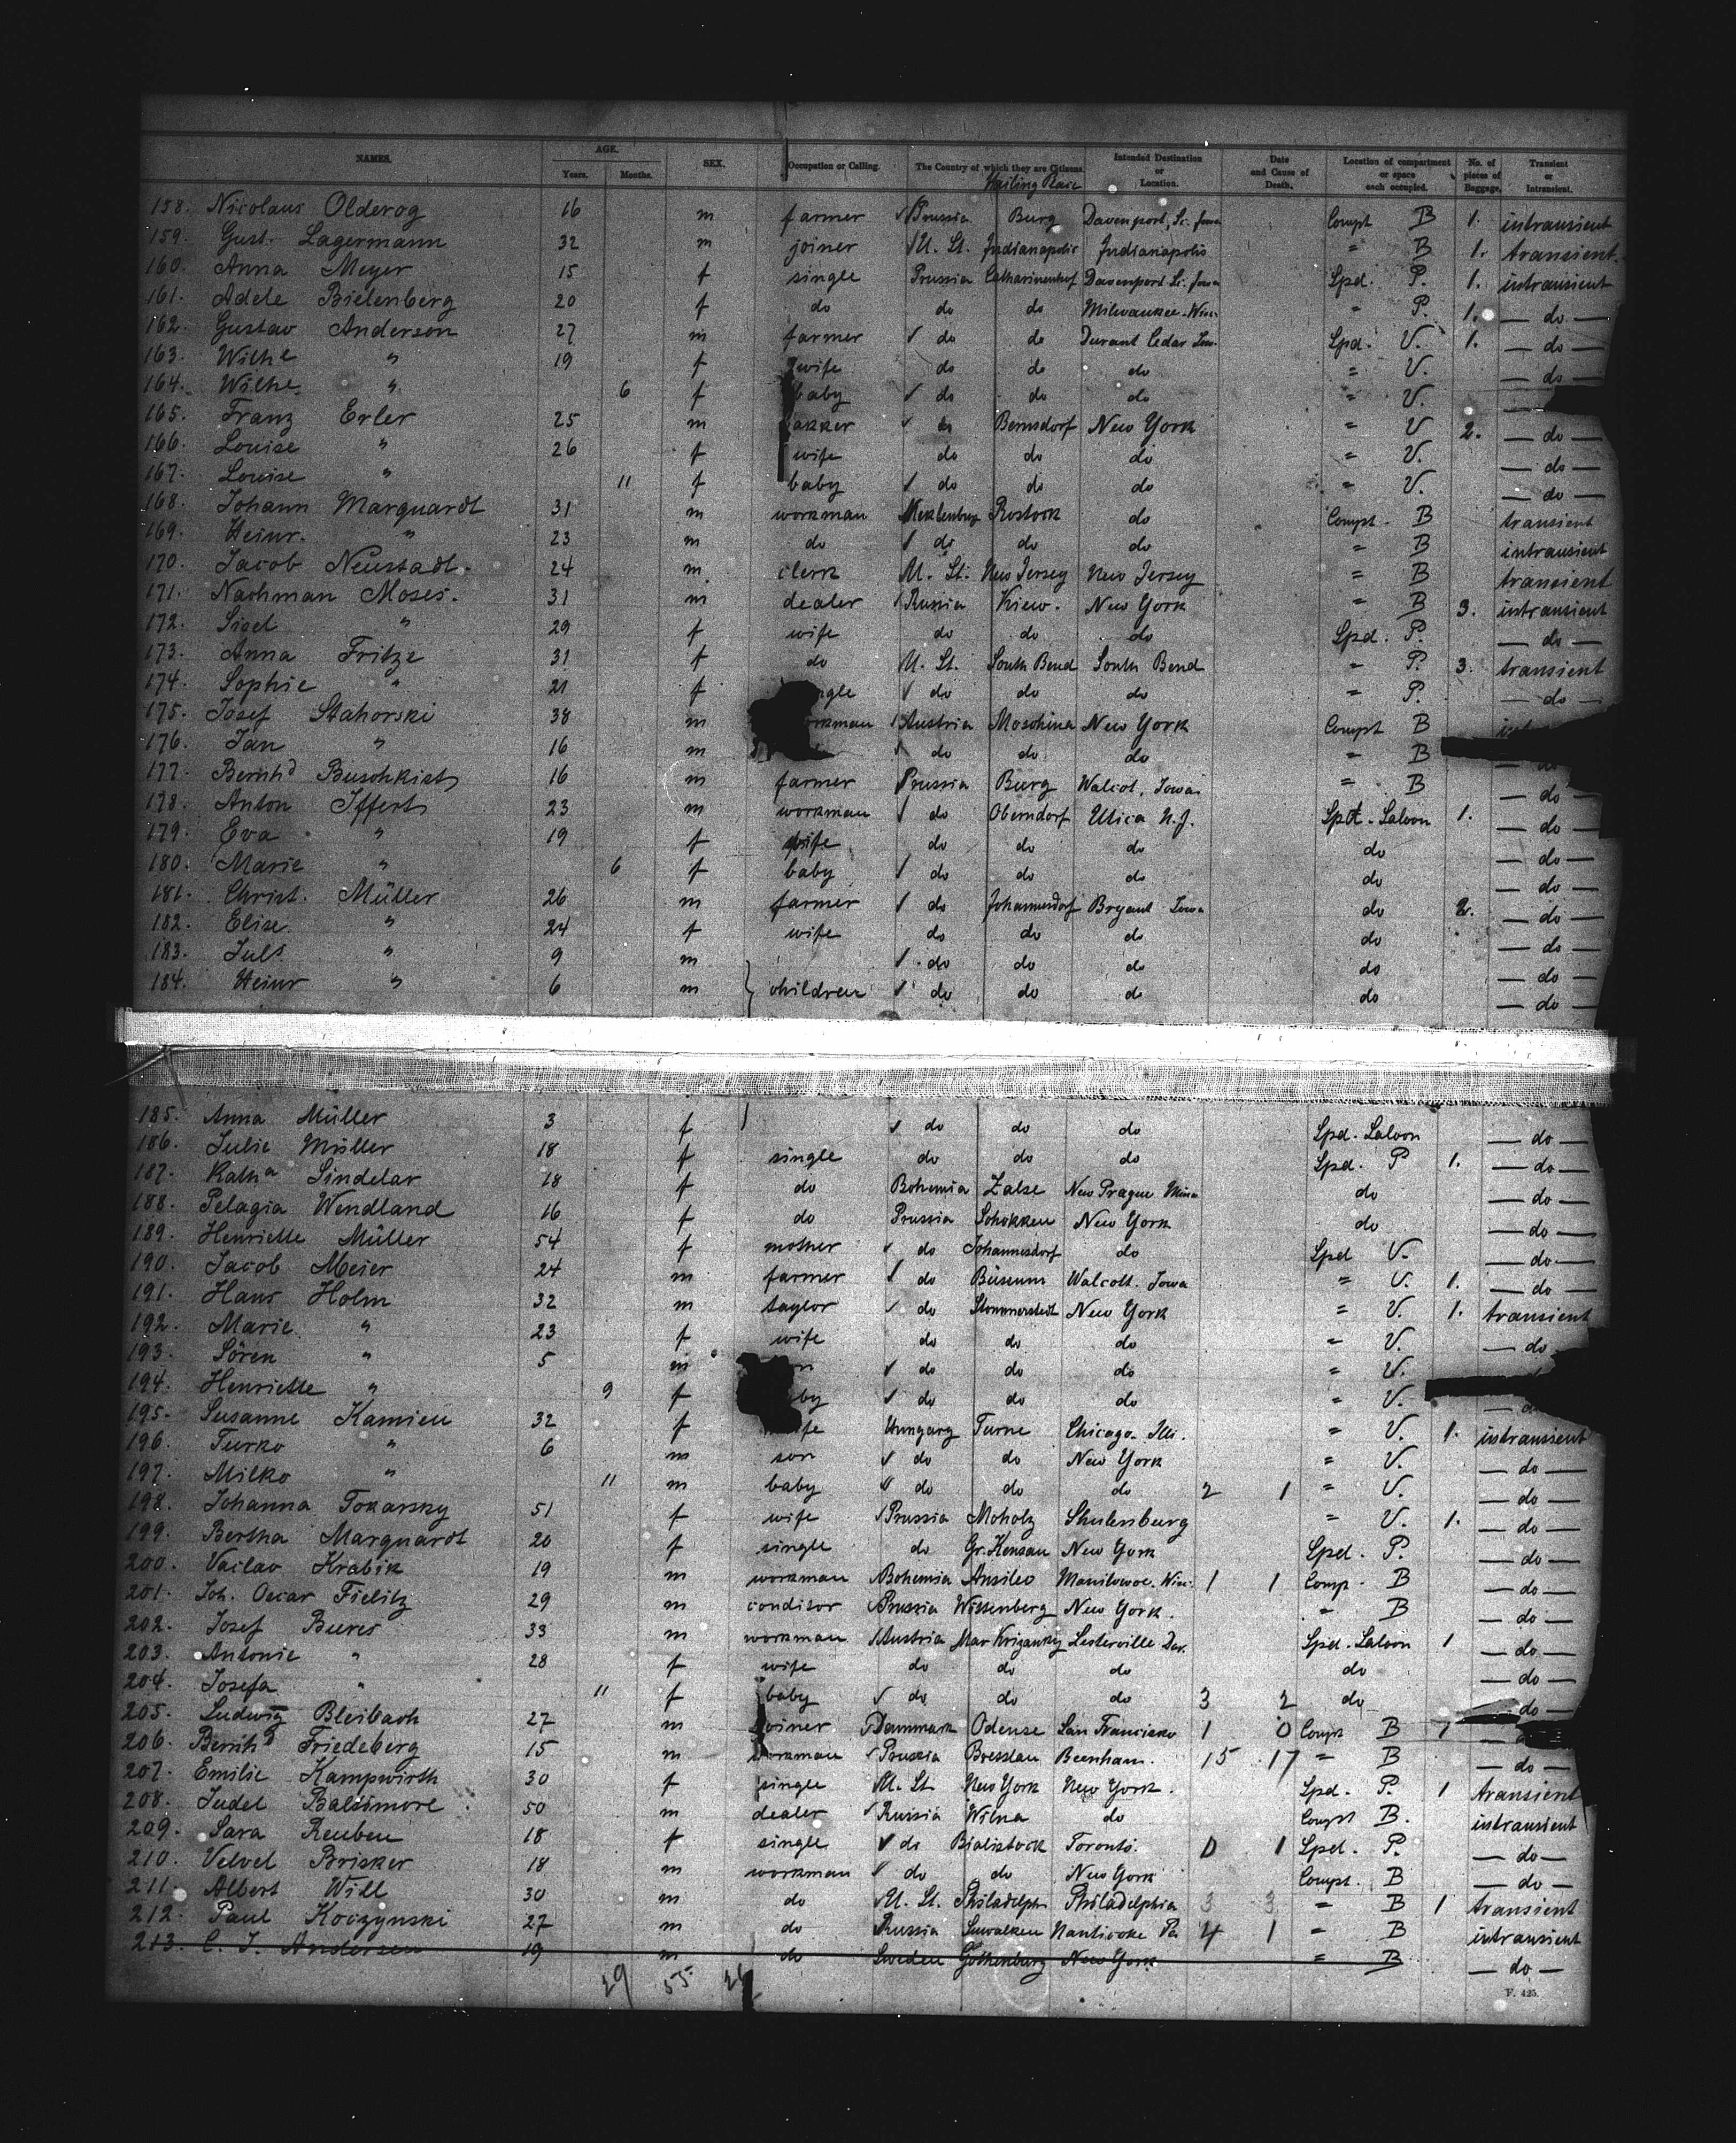 NAMES. AGE. Years. Months. SEX. Occupation or Calling. The Country of which they are Citizens. Intended Destination or Location. Date and Cause of Death. Location of compartment or space each occupied. No. of pieces of Baggage. Transient or Intransient.
158. Nicolaus Olderog 16 m farmer Prussia Burg Davenport, Sc. Iowa Compt B 1. intransient
159. Gust. Lagermann 32 m joiner U. St. Indianapolis Indianapolis " B 1. transient
160. Anna Meyer 15 f single Prussia Catharinenhof Davenport Sc. Iowa Spd. P. 1. intransient
161. Adele Bielenberg 20 f do do do Milwaukee. Wisc. " P. 1. — do —
162. Gustav Anderson 27 m farmer do do Durant Cedar Spd. V. 1. — do —
163. Wilhe " 19 f wife do do do " V. — do —
164. Wilhe " 6 f baby do do do " V. —
165. Franz Erler 25 m bakker do Bernsdorf New York " V 2. — do —
166. Louise " 26 f wife do do do " V. — do —
167. Louise " 11 f baby do do do " V. — do —
168. Johann Marquardt 31 m workman Meklenburg Rostock do Compt. B transient
169. Heinr. " 23 m do do do do " B intransient
170. Jacob Neustadt. 24 m. clerk U. St. New Jersey New Jersey " B transient
171. Nachman Moses. 31 m dealer Russia Kiew. New York " B 3. intransient
172. Sisel " 29 f wife do do do Spd. P. — do —
173. Anna Fritze 31 f do U. St. South Bend South Bend " P. 3. transient
174. Sophie " 21 f ngle do do do " P. — do —
175. Josef Stahorski 38 m orkman Austria Moschina New York Compt B
176. Jan " 16 m do do do " B
177. Bernhd Buschkist 16 m farmer Prussia Burg Walcot, Iowa " B — do —
178. Anton Iffert 23 m workman do Oberndorf Utica N.J. Spd. Saloon 1. — do —
179. Eva " 19 f wife do do do do — do —
180. Marie " 6 f baby do do do do — do —
181. Christ. Müller 26 m farmer do Johannesdorf Bryant Iowa do 2. — do —
182. Elise " 24 f wife do do do do — do —
183. Juls " 9 m do do do do — do —
184. Heinr " 6 m children do do do do — do —
185. Anna Müller 3 f do do do Spd. Saloon — do —
186. Julie Müller 18 f single do do do Spd. P 1. — do —
187. Katha Sindelar 18 f do Bohemia Zalse New Prague Minn do — do —
188. Pelagia Wendland 16 f do Prussia Schokken New York do — do —
189. Henriette Müller 54 f mother do Johannesdorf do Spd V. — do —
190. Jacob Meier 24 m farmer do Büsum Walcott. Iowa " V. 1. — do —
191. Hans Holm 32 m taylor do New York " V. 1. transient
192. Marie " 23 f wife do do do " V. — do —
193. Sören " 5 m on do do do " V.
194. Henriette " 9 f by do do do " V.
195. Susanne Kamien 32 f fe Hungary Turne Chicago. Ill. " V. 1. intransient
196. Turko " 6 m son do do New York " V. — do —
197. Milko " 11 m baby do do do 2 1 " V. — do —
198. Johanna Tokarsky 51 f wife Prussia Moholz Shulenburg " V. 1. — do —
199. Bertha Marquardt 20 f single do Gr. Kensau New York Spd. P. — do —
200. Vaclav Hrabik 19 m workman Bohemia Ansilev Manitowoc. Wisc. 1 1 Comp. B — do —
201. Joh. Oscar Fielitz 29 m conditor Prussia Wittenberg New York. " B — do —
202. Josef Bures 33 m workman Austria Mar Krizanky Lesterville Dac. Spd. Saloon 1 — do —
203. Antonie " 28 f wife do do do do — do —
204. Josefa " 11 f baby do do do 3 2 do do —
205. Ludwig Bleibach 27 m joiner Dannmark Odense San Francisko 1 0 Compt B 1
206. Bernhd Friedeberg 15 m workman Prussia Bresslau Beenham. 15 17 " B — do —
207. Emilie Kampwirth 30 f single U. St. New York New York. Spd. P. 1 transient
208. Judel Baltimore. 50 m dealer Russia Wilna do Compt B. intransient
209. Sara Reuben 18 f single do Bialistock Toronto. 0 1 Spd. P. — do —
210. Velvel Brisker 18 m workman do do New York Compt. B — do —
211. Albert Will 30 m do U. St. Philadelph. Philadelphia 3 3 " B 1 transient
212. Paul Koczynski 27 m do Russia Suwalken Nanticoke Pa 4 1 " B intransient
213. C. J. Andersen 19 m do Sweden Gothenburg New York " B — do —
29 55
F. 425.